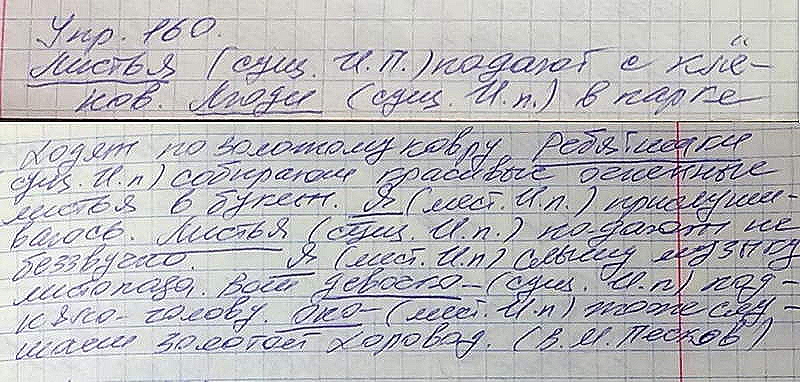 Упр. 160.
Листья (сущ. И.П.) падают с клё-
нов. Люди (сущ. И.п.) в парке
ходят по золотому ковру. Ребятишки
сущ. И.п) собирают красивые осенние
листья в букеты. Я (мест. И.п.) прислуши-
ваюсь. Листья (сущ. И.п.) падают не
беззвучно. Я (мест. И.п) слышу музыку
листопада. Вот девочка - (сущ. И.п) под-
няла голову. Она - (мест. И.п) тоже слу-
шает золотой хоровод. (В.М. Песков)